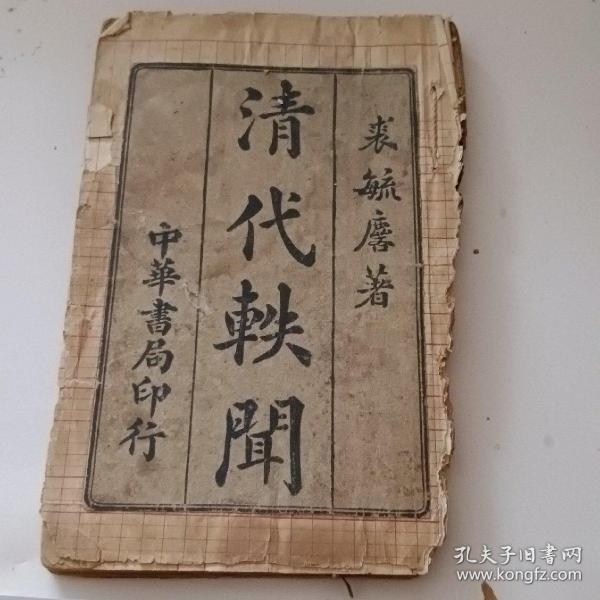 裘毓麐著
清代軼聞
中華書局印行
孔夫子旧书网
www.kongfz.com